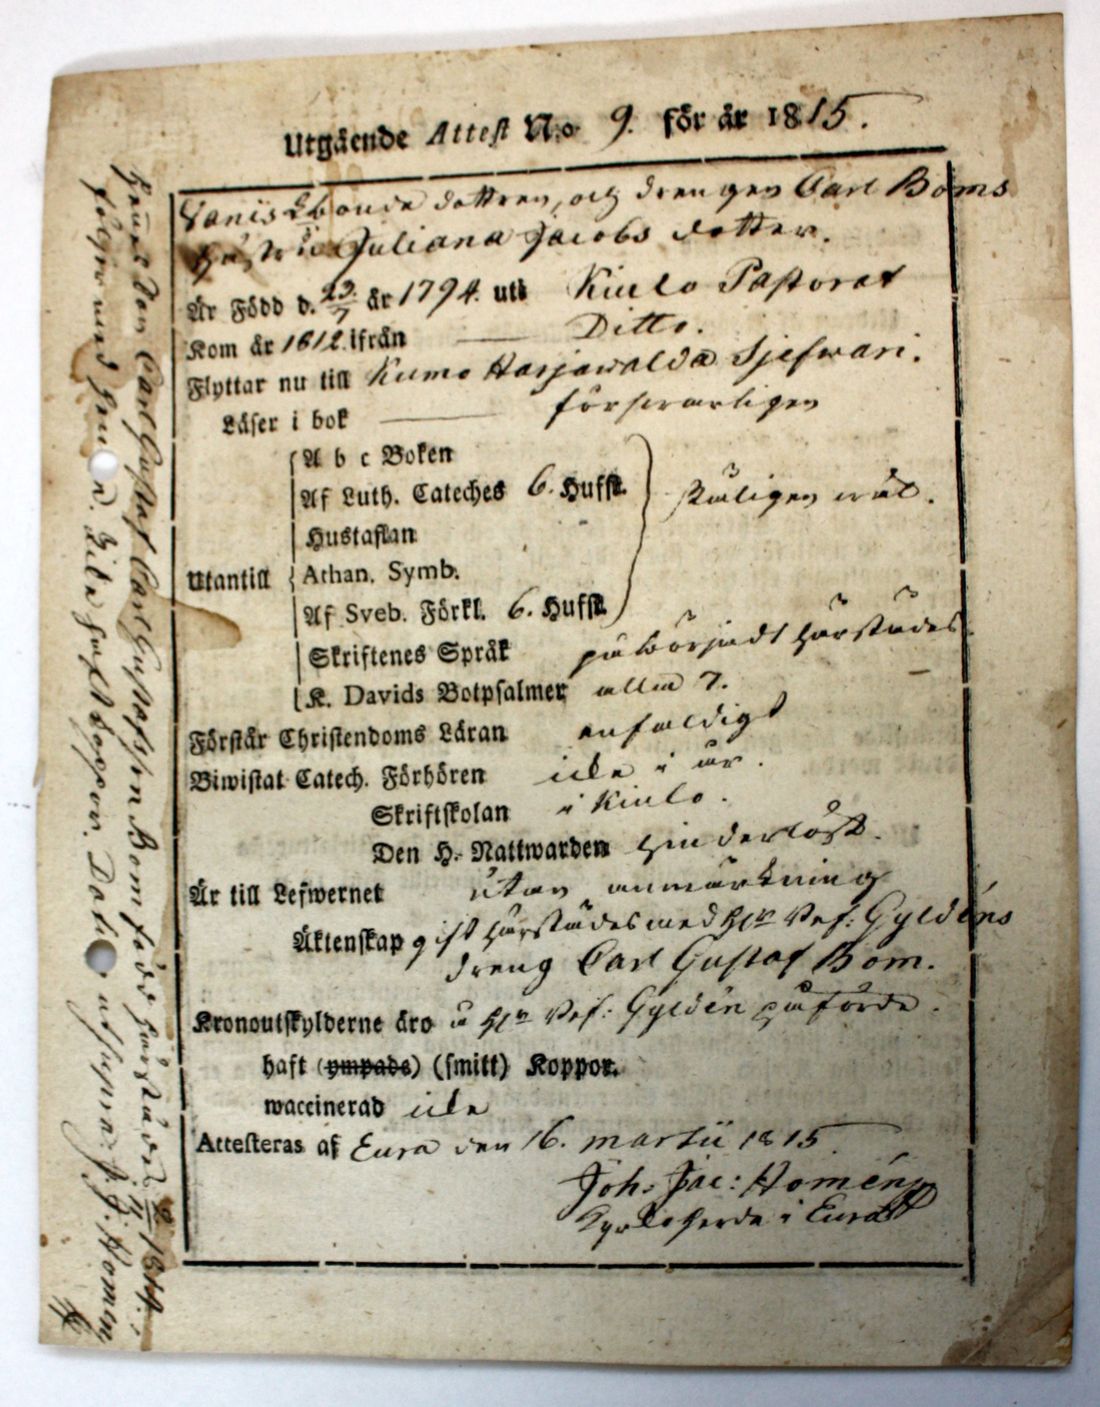 Utgående Attest No 9. för år 1815.
bonde dottren, och drengen Carl Boms
Hustru Juliana Jacobs dotter.
Är Född d. 23/7 år 1794. uti Kiulo Pastorat
Kom år 1812 ifrån Ditto.
Flyttar nu till Kumo Harjawalda Sjefwari.
Läser i bok försvarligen
A b c Boken
Af Luth. Cateches 6. Hufst. skäligen wäl.
Hustaflan
Utantill Athan. Symb.
Af Sveb. Förkl. 6. Hufst.
Skriftenes Språk påbörjadt härstädes
K. Davids Botpsalmer alla 7.
Förstår Christendoms Läran enfaldigt
Biwistat Catech. Förhören icke i år.
Skriftskolan i Kiulo.
Den H. Nattwarden hinderlöst.
Är till Lefwernet utan anmärkning
Äktenskap gift härstädes med Hr Gyldéns
dreng Carl Gustaf Bom.
Kronoutskylderne äro å Hr Gyldén påförde.
haft (ympade) (smitt) Koppor.
waccinerad icke
Attesteras af Eura den 16. Martii 1815
Joh: Jac: Homén
Kyrkoherde i Eura
Sonen Carl Gustaf Carl Gustafsson Bom född härstädes 1814.
följer med J. J. Homén